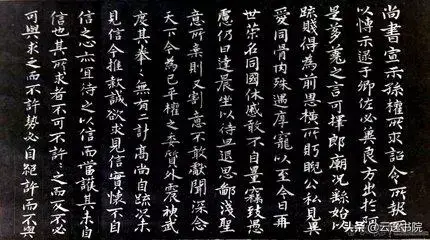 尚書宣示孫權所求詔令所報所
以博示逮于卿佐必冀良方出於阿
是芻蕘之言可擇郎廟況繇始以
疏賤得為前恩橫所盱睨公私見異
愛同骨肉殊遇厚寵以至今日再
世榮名同國休慼敢不自量竊致愚
慮仍日達晨坐以待旦退思鄙淺聖
意所棄則又割意不敢獻聞深念
天下今為已平權之委質外震神武
度其拳々無有二計高尚自疏況未
見信今推款誠欲求見信實懷不自
信之心亦宜待之以信而當護其未自
信也其所求者不可不許々之而反不必
可與求之而不許勢必自絕許而不與
头条 @云 书院